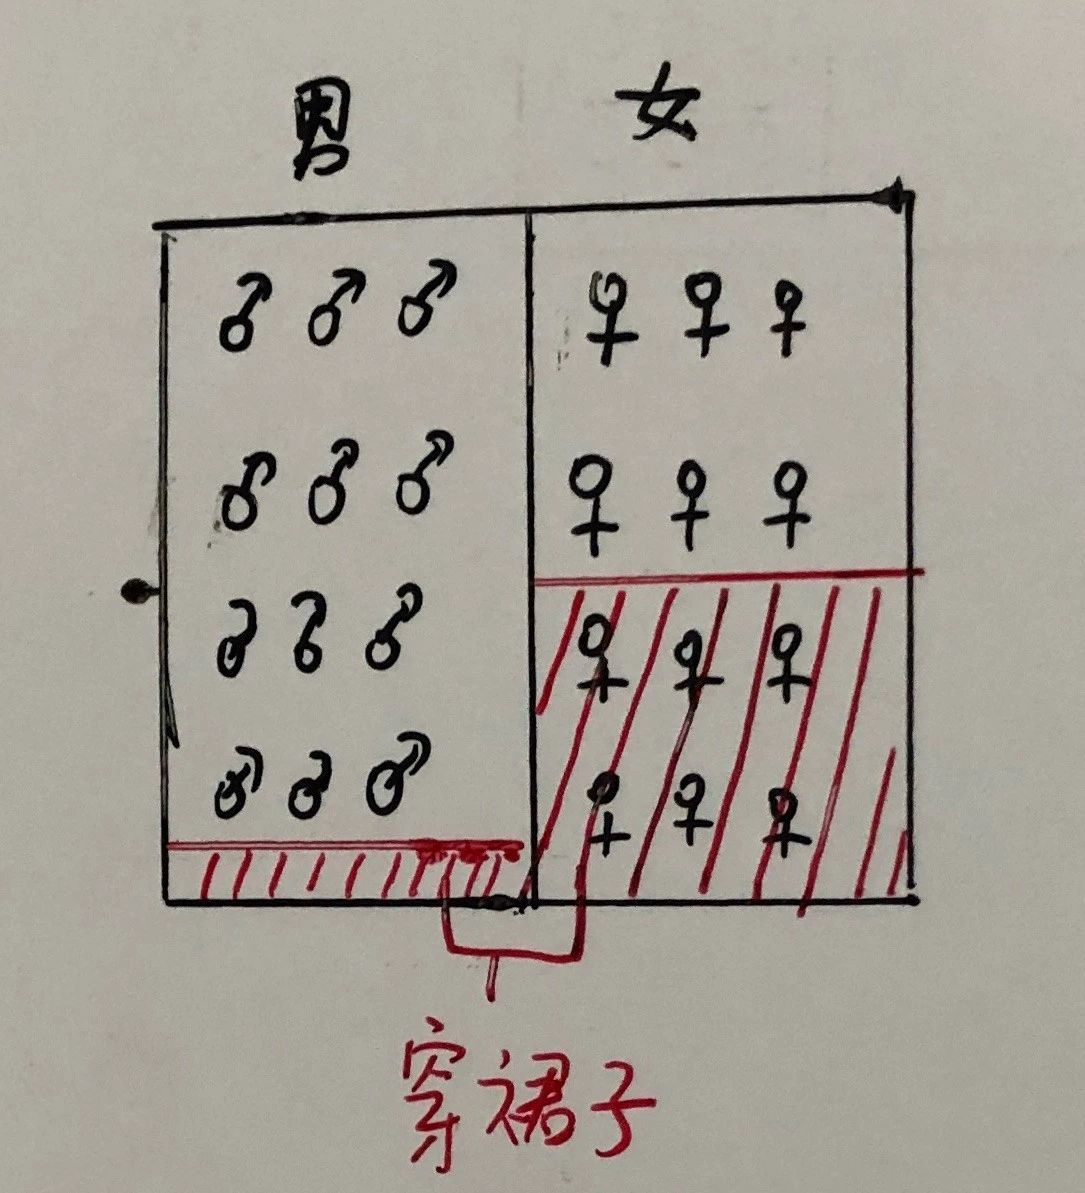 男 女
穿裙子